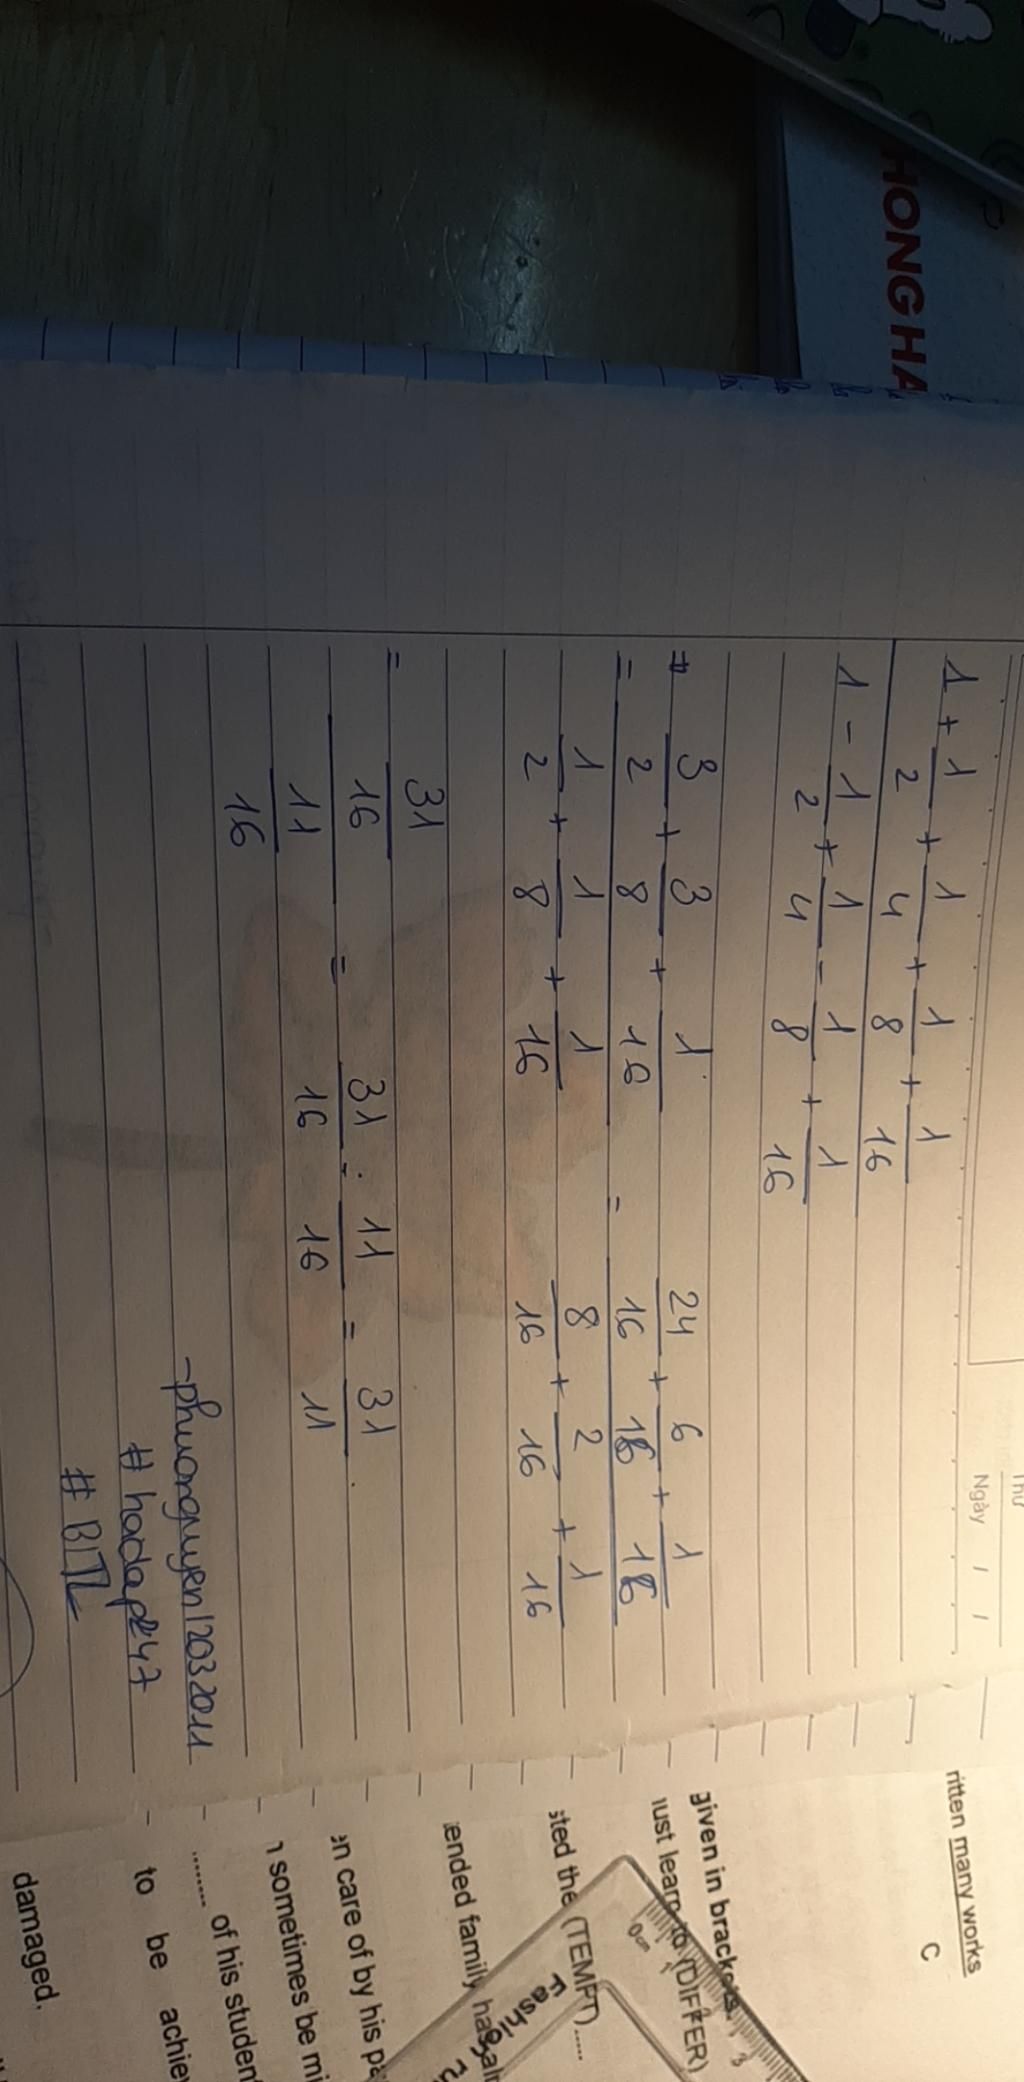 HONG HA
Thứ
Ngày / /
1 + 1/2 + 1/4 + 1/8 + 1/16
1 - 1/2 + 1/4 - 1/8 + 1/16
= 3/2 + 3/8 + 1/16 = 24/16 + 6/16 + 1/16
1/2 + 1/8 + 1/16 8/16 + 2/16 + 1/16
= 31/16
11/16 = 31/16 : 11/16 = 31/11 .
-phuonguyen12032011
# hadap247
# BTL
ritten many works
C
given in brackets.
ust learn to (DIFFER)
sted the (TEMPT).....
ended family has
en care of by his pa
n sometimes be mi
......... of his student
to be achie
damaged.
0 cm 1 2 3
Fashio